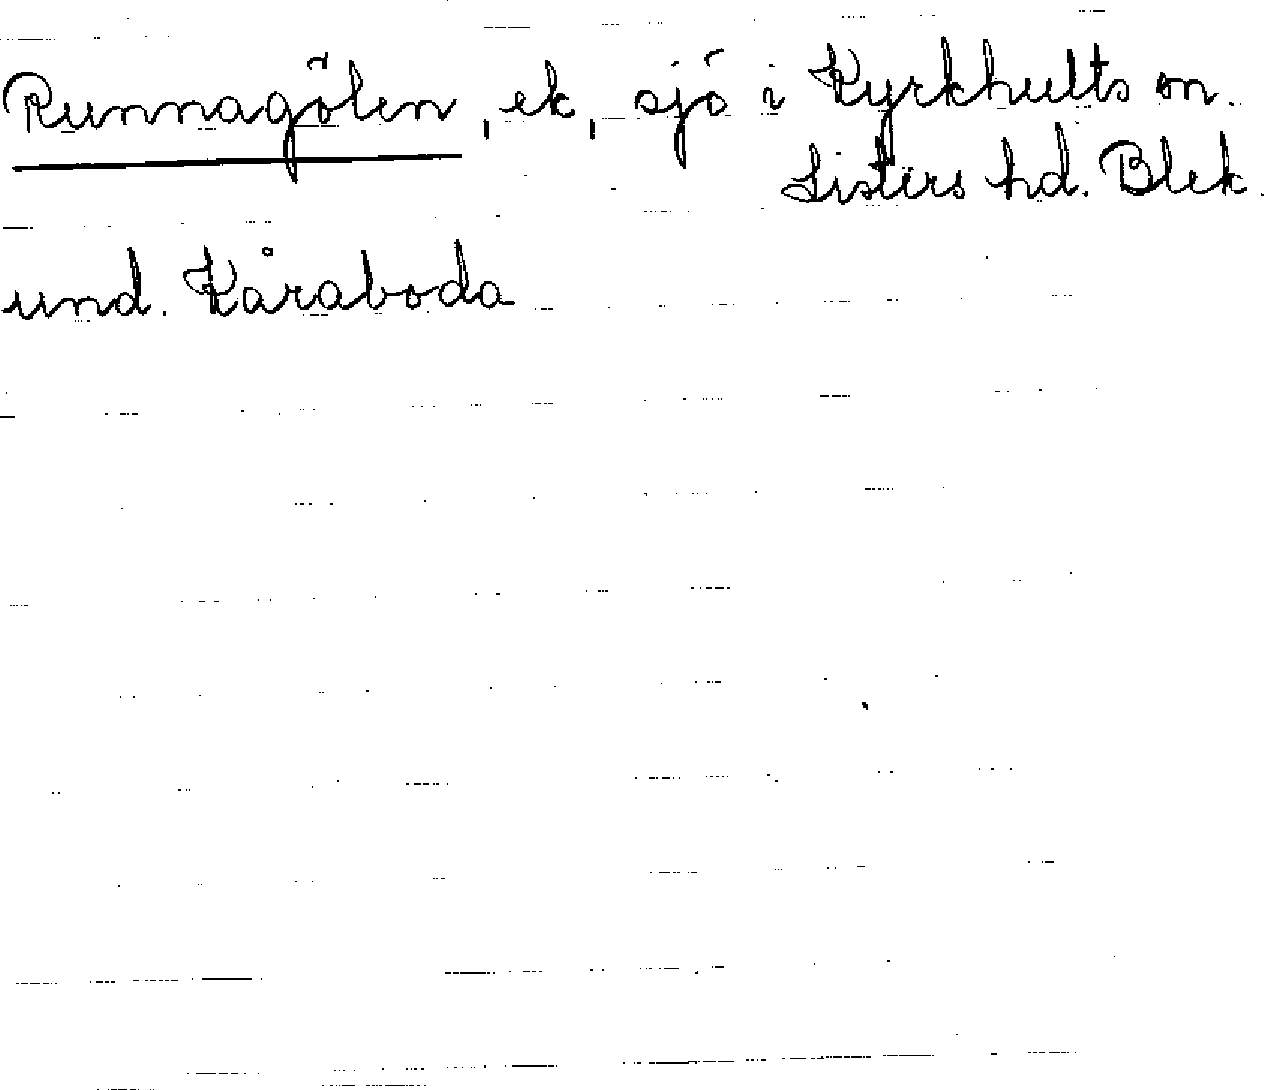 Runnagölen, ek, sjö i Kyrkhults sn.
Listers hd. Blek.
und. Kåraboda